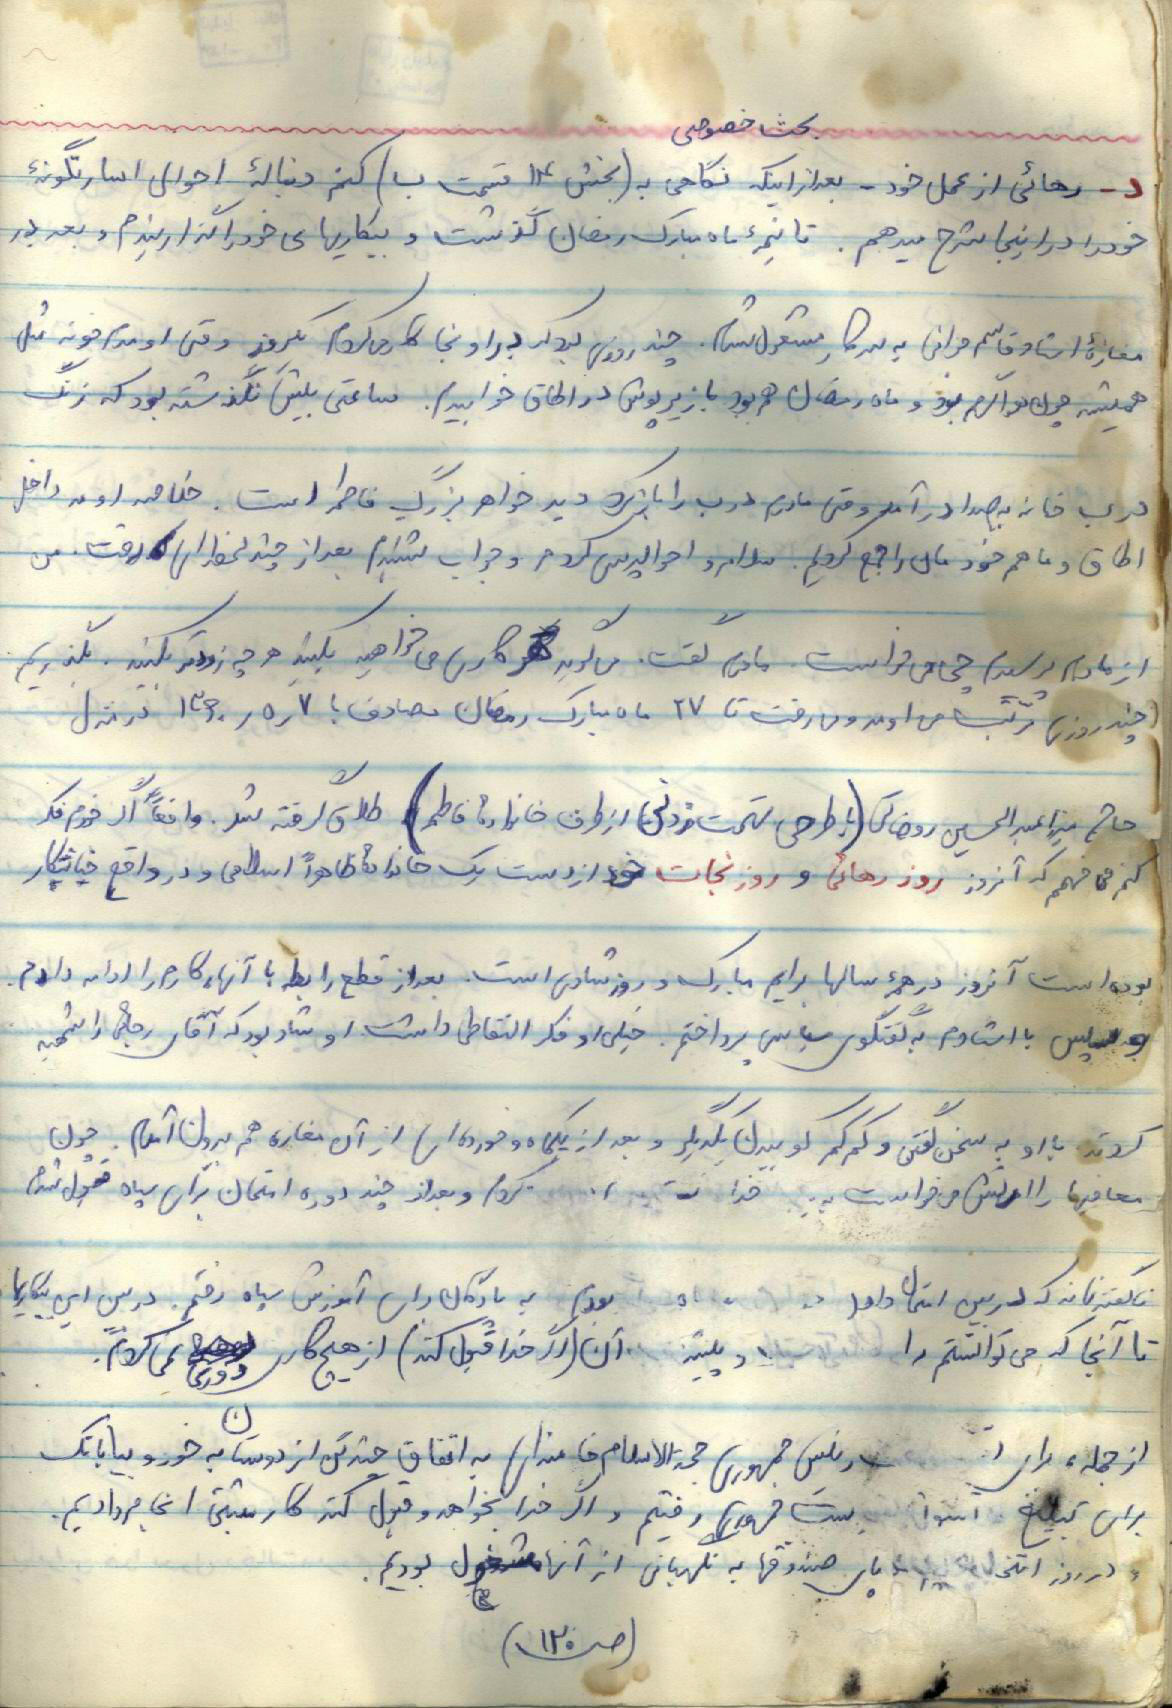 بحث خصوصی
د - رهائی از عمل خود - بعد از اینکه نگاهی به (بخش ۱۴ قسمت ب) کنم دنبالهٔ احوال اسارتگونهٔ
خود را در اینجا شرح میدهم. تا نیمهٔ ماه مبارک رمضان گذشت و بیکاریهای خود را گذارندم و بعد در
مغازهٔ استاد قاسم به سر کار مشغول شدم. چند روزی بود که در اونجا کار می‌کردم یکروز وقتی اومدم خونه مثل
همیشه چون هوا گرم بود و ماه رمضان هم بود با زیرپوش در اطاق خوابیدم. ساعتی بیش نگذشته بود که زنگ
درب خانه به صدا در آمد وقتی مادرم درب را باز کرد دید خواهر بزرگ فاطمه است. خلاصه اومد داخل
اطاق و ما هم خود مان را جمع کردیم. سلام و احوالپرسی کردم و جواب شنیدم بعد از چند لحظه‌ای رفت. من
از مادرم پرسیدم چی می‌خواست. مادرم گفت. می‌گوید هر کاری می‌خواهید بکنید هر چه زودتر بکنید. بگذریم
(چند روزی مرتّب می اومد و می رفت تا ۲۷ ماه مبارک رمضان مصادف با ۷ ر ۵ ر ۱۳۶۰ در منزل
حاج میرزا عبدالحسین روضاتی (با طرحی تهمت از طرف خانواده فاطمه) طلاق گرفته شد. واقعاً اگر خوب فکر
کنم می فهمم که آنروز روز رهائی و روز نجات خود از دست یک خانوادهٔ ظاهراً اسلامی و در واقع خیانتکار
بوده است آنروز در همهٔ سالها برایم مبارک و روز شادی است. بعد از قطع رابطه با آنها، کارم را ادامه دادم.
و سپس با استادم به گفتگوی سیاسی پرداختم. خیلی او فکر التقاطی داشت او شاد بود که آقای رجائی را شهید
کردند با او به سخن گفتن و کم کم کوبیدن یکدیگر و بعد از یکماه و خورده‌ای از آن مغازه هم بیرون آمدم. چون
معافیها را ارتش می‌خواست خدا کردم و بعد از چند دوره امتحان برای سپاه قبول شدم
ناگفته نماند که در بین امتحان دادن بودم به پادگان برای آموزش سپاه رفتم. در بین این بیکاریها
تا آنجا که می توانستم را و پشتیـ آن (اگر خدا قبول کند) از هیچ کاری دوری نمی کردم.
از جمله، برای ریاست جمهوری حجةالاسلام خامنه‌ای به اتفاق چند تن از دوستان به خور و بیابانک
برای تبلیغ ریاست جمهوری رفتیم و اگر خدا بخواهد و قبول کند کار مثبتی انجام دادیم.
و در روز انتخابات پای صندوقها به نگهبانی از آنها مشغول بودیم.
(ص ۱۲۰)